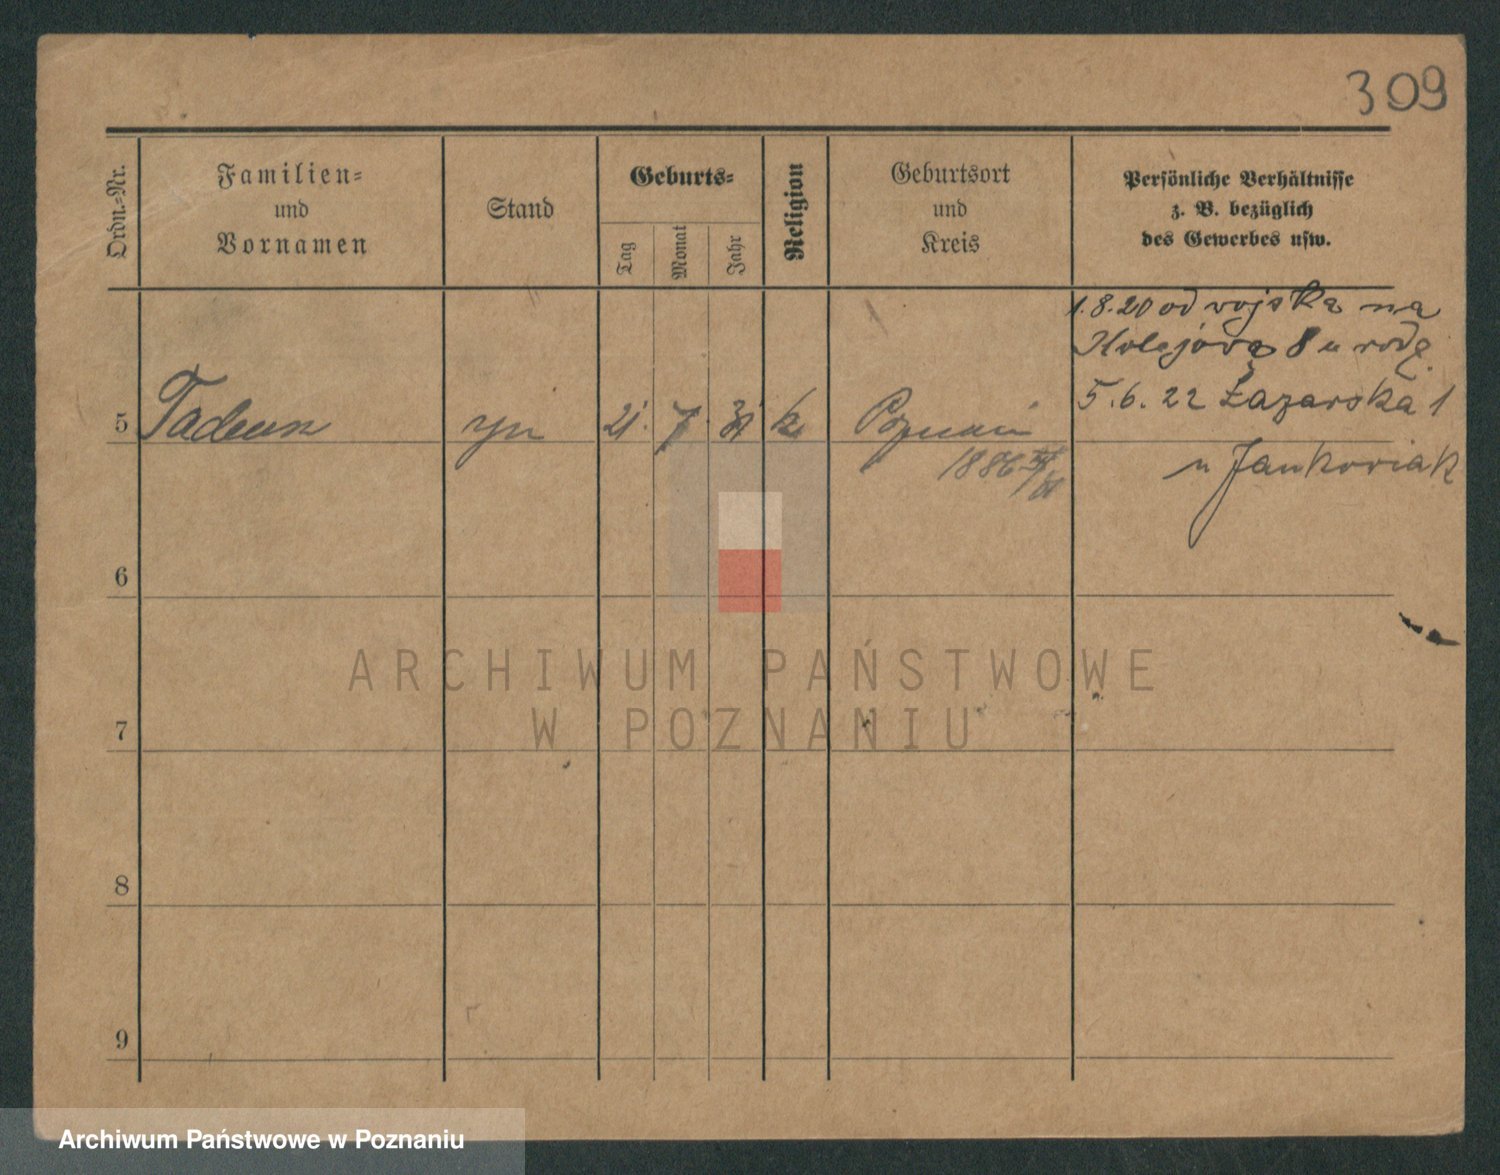 309
Ordn.=Nr.
Familien=
und
Vornamen
Stand
Geburts=
Tag
Monat
Jahr
Religion
Geburtsort
und
Kreis
Persönliche Verhältnisse
z. B. bezüglich
des Gewerbes usw.
1.8.20 od wojska na
Kolejową 8 u rodz.
5 Tadeusz syn 21. 7. 31 k Poznań 5.6.22 Łazarska 1
1886
u Jankowiak
6
7
8
9
ARCHIWUM PAŃSTWOWE
W POZNANIU
Archiwum Państwowe w Poznaniu